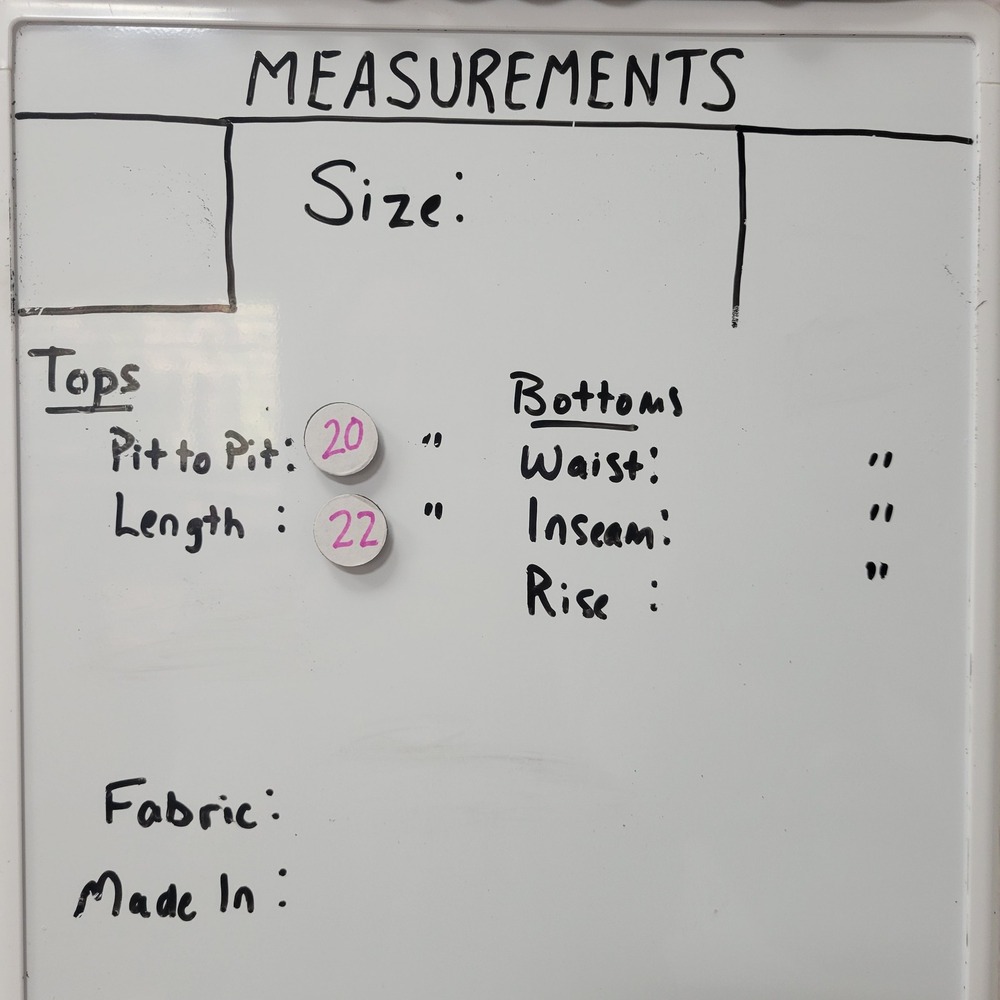 MEASUREMENTS
Size:
Tops
Pit to Pit: 20 "
Length : 22 "
Bottoms
Waist: "
Inseam: "
Rise : "
Fabric:
Made In :